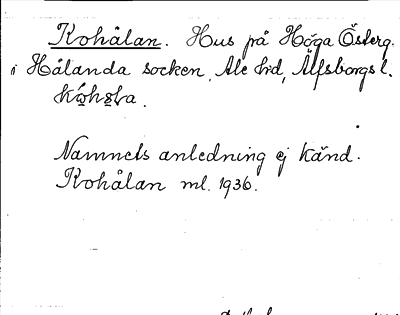 Kohålan. Hus på Höga Österg.
i Hålanda socken, Ale hd, Älfsborgs l.
Namnets anledning ej känd.
Kohålan ml. 1936.